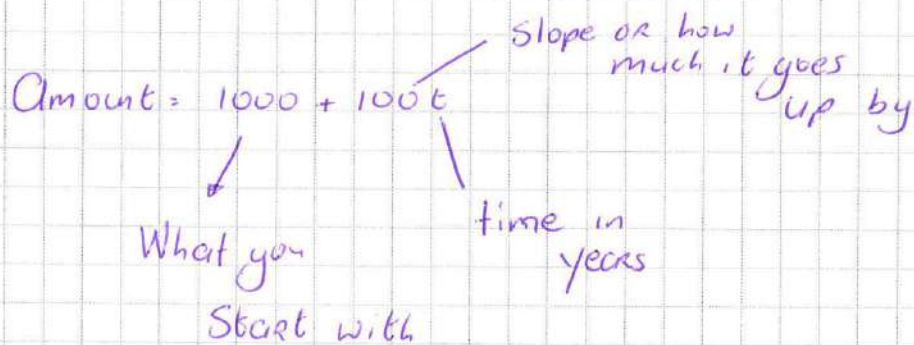 Slope or how
much it goes
up by
Amount = 1000 + 100t
What you
Start with
time in
years